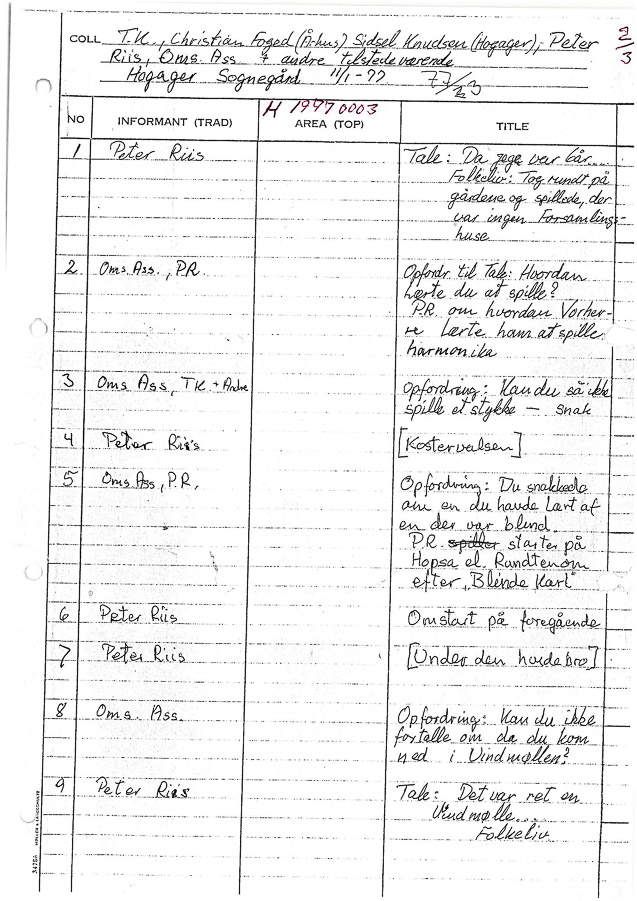 COLL T.K., Christian Foged (Århus) Sidsel Knudsen (Hogager), Peter
Riis, Oms. Ass + andre tilstedeværende
Hogager Sognegård 11/1-77 77/23
2/3
H 1977 0003
NO INFORMANT (TRAD) AREA (TOP) TITLE
1 Peter Riis Tale: Da jege var bår....
Folkeliv: Tog rundt på
gårdene og spillede, der
var ingen Forsamlings-
huse
2 Oms. Ass., P.R. Opfordr. til Tale: Hvordan
lærte du at spille?
P.R. om hvordan Vorher-
re lærte ham at spille
harmonika
3 Oms Ass, TK + Andre Opfordring: Kan du så ikke
spille et stykke — snak
4 Peter Riis [Kostervalsen]
5 Oms Ass, P.R. Opfordring: Du snakkede
om en du havde lært af
en der var blind.
P.R. spiller starter på
Hopsa el. Rundtenom
efter „Blinde Karl"
6 Peter Riis Omstart på foregående
7 Peter Riis [Under den hvide bro]
8 Oms. Ass. Opfordring: Kan du ikke
fortælle om da du kom
ned i Vindmøllen?
9 Peter Riis Tale: Det var ret en
Vindmølle....
Folkeliv